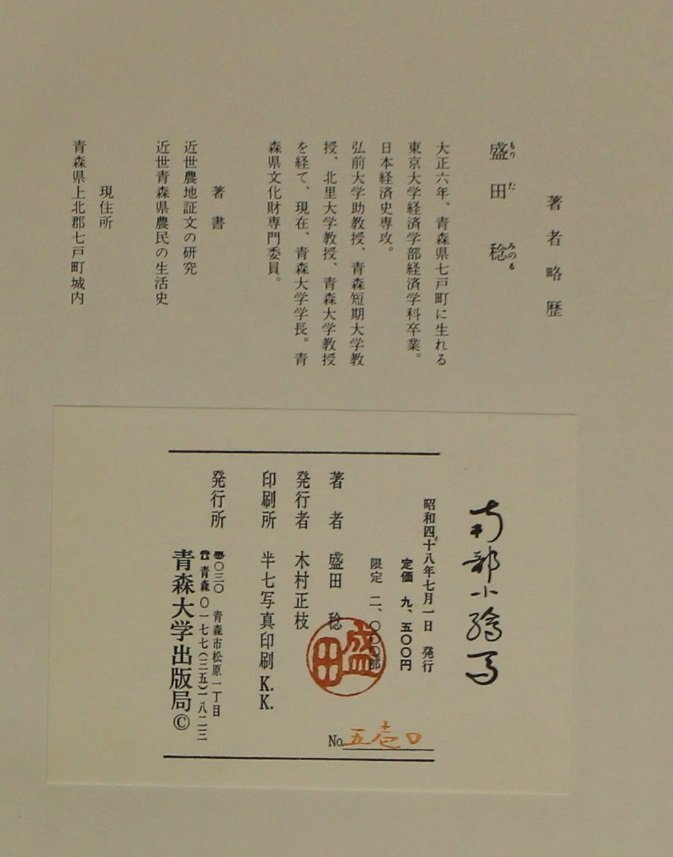 著者略歴
盛田 稔
もり た みのる
大正六年、青森県七戸町に生れる
東京大学経済学部経済学科卒業。
日本経済史専攻。
弘前大学助教授、青森短期大学教
授、北里大学教授、青森大学教授
を経て、現在、青森大学学長。青
森県文化財専門委員。
著書
近世農地証文の研究
近世青森県農民の生活史
現住所
青森県上北郡七戸町城内
南部小絵馬
昭和四十八年七月一日 発行
定価 九、五〇〇円
限定 二、〇〇〇部
著者 盛田 稔
盛田
発行者 木村正枝
印刷所 半七写真印刷K.K.
発行所
〒〇三〇 青森市松原一丁目
☎青森〇一七七(三五)一八二三
青森大学出版局©
No. 五壱〇